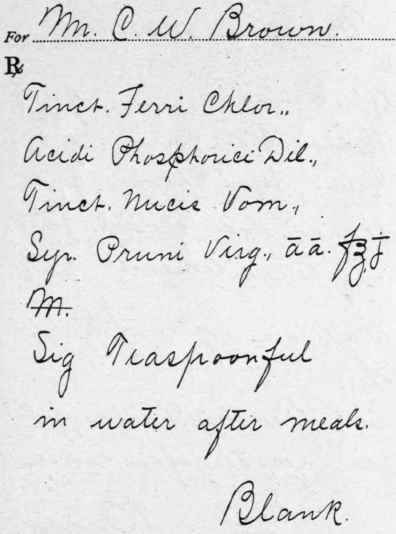 For Mr. C. W. Brown.
℞
Tinct. Ferri Chlor.,
Acidi Phosphorici Dil.,
Tinct. Nucis Vom.,
Syr. Pruni Virg., āā. f℥j
M.
Sig Teaspoonful
in water after meals.
Blank.